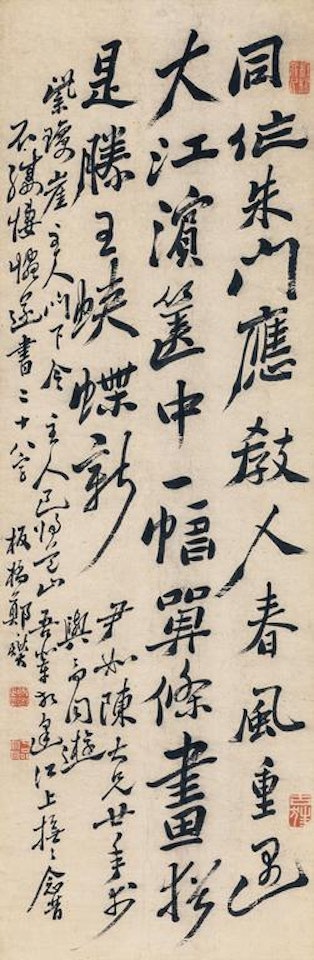 同作朱門應教人春風重遇
大江濱篋中一幅單條畫猶
是滕王蛺蝶新
尹如陳大兄廿年前
與同遊
紫瓊崖主人門下今主人已歸道山吾輩相逢江上撫念昔
不勝悽愴遂書二十八字 板橋鄭燮